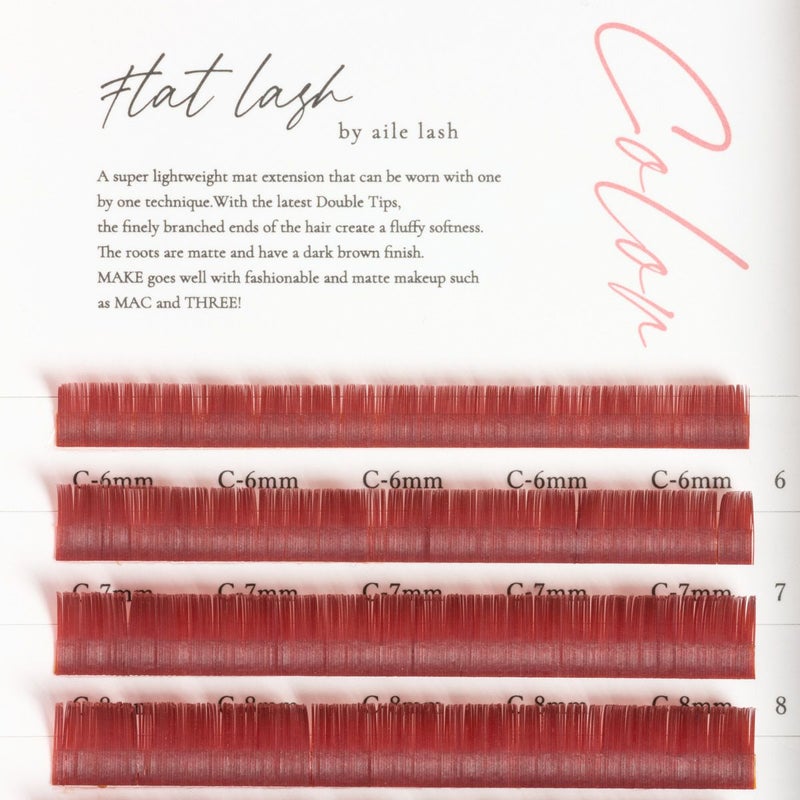 Flat lash
by aile lash
Color
A super lightweight mat extension that can be worn with one
by one technique.With the latest Double Tips,
the finely branched ends of the hair create a fluffy softness.
The roots are matte and have a dark brown finish.
MAKE goes well with fashionable and matte makeup such
as MAC and THREE!
C-6mm C-6mm C-6mm C-6mm C-6mm 6
C-7mm C-7mm C-7mm C-7mm C-7mm 7
C-8mm C-8mm C-8mm C-8mm C-8mm 8